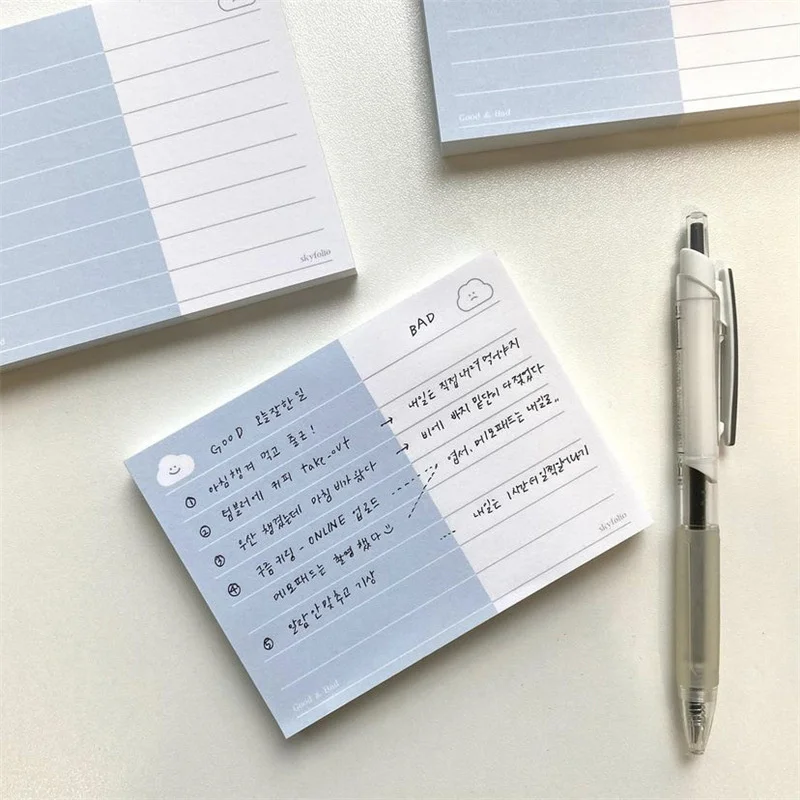 Good & Bad
skyfolio
GOOD 오늘잘한일
① 아침 챙겨 먹고 출근!
② 텀블러에 커피 take-out
③ 우산 챙겼는데 마침 비가 왔다
④ 구름키링 - ONLINE 업로드
메모패드는 촬영했다
⑤ 알람 안 맞추고 기상
Good & Bad
BAD
→ 내일은 직접 내려 먹어야지
→ 비에 바지 밑단이 다 젖었다
엽서, 메모패드는 내일로..
내일은 1시간 더 일찍 일어나기
skyfolio